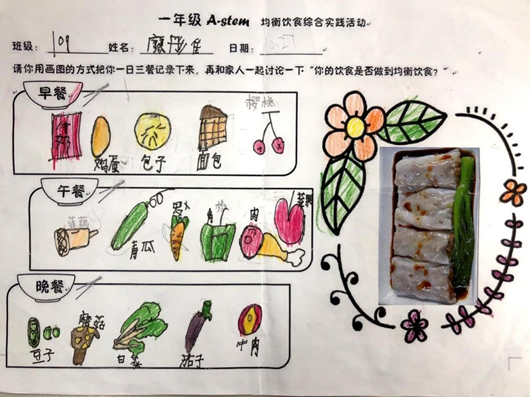 一年级 A-stem 均衡饮食综合实践活动
班级：109 姓名： 日期：10.27
请你用画图的方式把你一日三餐记录下来，再和家人一起讨论一下“你的饮食是否做到均衡饮食？”
早餐
樱桃
鸡蛋 包子 面包
午餐
萝卜 肉
青瓜
晚餐
蘑菇
豆子 白菜 茄子 牛肉